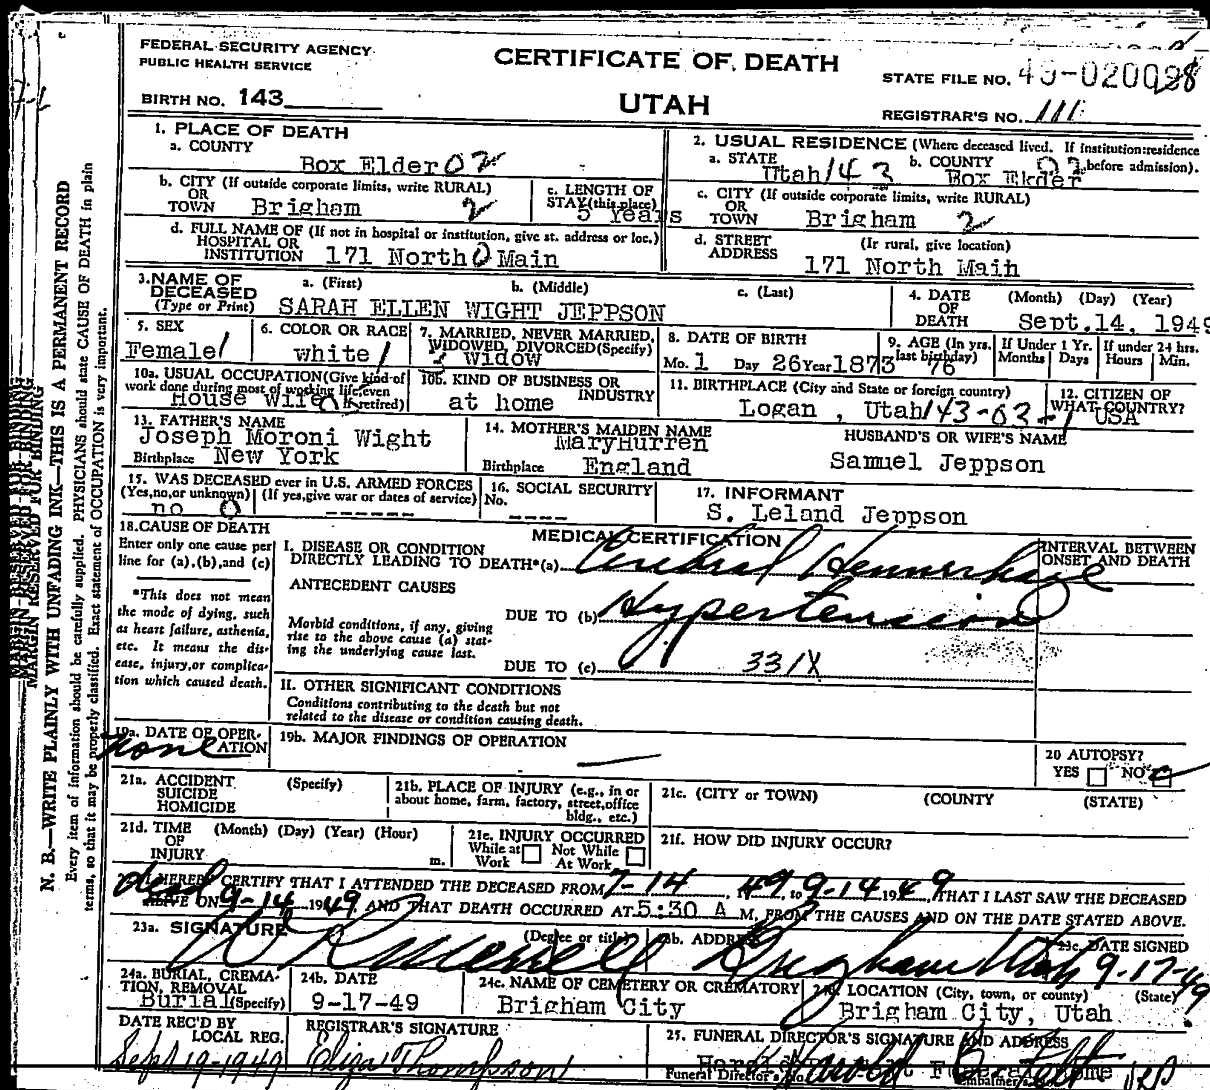 FEDERAL SECURITY AGENCY
PUBLIC HEALTH SERVICE
CERTIFICATE OF DEATH
STATE FILE NO.
BIRTH NO. 143
UTAH
REGISTRAR'S NO. 111
1. PLACE OF DEATH
a. COUNTY
Box Elder 02
2. USUAL RESIDENCE (Where deceased lived. If institution:residence before admission).
a. STATE Utah 143 b. COUNTY Box Ekder
b. CITY (If outside corporate limits, write RURAL)
OR
TOWN Brigham 2
c. LENGTH OF
STAY(this place)
5 Years
c. CITY (If outside corporate limits, write RURAL)
OR
TOWN Brigham 2
d. FULL NAME OF (If not in hospital or institution, give st. address or loc.)
HOSPITAL OR
INSTITUTION 171 North 0 Main
d. STREET (Ir rural, give location)
ADDRESS 171 North Main
3.NAME OF
DECEASED
(Type or Print)
a. (First) b. (Middle) c. (Last)
SARAH ELLEN WIGHT JEPPSON
4. DATE OF DEATH (Month) (Day) (Year)
Sept.14, 1949
5. SEX
Female 1
6. COLOR OR RACE
white 1
7. MARRIED, NEVER MARRIED,
WIDOWED, DIVORCED(Specify)
3 Widow
8. DATE OF BIRTH
Mo. 1 Day 26 Year 1873
9. AGE (In yrs.
last birthday)
76
If Under 1 Yr.
Months Days
If under 24 hrs.
Hours Min.
10a. USUAL OCCUPATION(Give kind of
work done during most of working life,even
if retired)
House Wife
10b. KIND OF BUSINESS OR
INDUSTRY
at home
11. BIRTHPLACE (City and State or foreign country)
Logan , Utah 143-03-1
12. CITIZEN OF
WHAT COUNTRY?
USA
13. FATHER'S NAME
Joseph Moroni Wight
Birthplace New York
14. MOTHER'S MAIDEN NAME
MaryHurren
Birthplace England
HUSBAND'S OR WIFE'S NAME
Samuel Jeppson
15. WAS DECEASED ever in U.S. ARMED FORCES
(Yes,no,or unknown) (If yes,give war or dates of service)
no 0 ------
16. SOCIAL SECURITY
No.
----
17. INFORMANT
S. Leland Jeppson
18.CAUSE OF DEATH
Enter only one cause per
line for (a),(b),and (c)
*This does not mean
the mode of dying, such
as heart failure, asthenia,
etc. It means the dis-
ease, injury,or complica-
tion which caused death.
MEDICAL CERTIFICATION
I. DISEASE OR CONDITION
DIRECTLY LEADING TO DEATH*(a) Cerebral Hemmorhage
INTERVAL BETWEEN
ONSET AND DEATH
ANTECEDENT CAUSES
DUE TO (b) Hypertension
Morbid conditions, if any, giving
rise to the above cause (a) stat-
ing the underlying cause last.
DUE TO (c) 331X
II. OTHER SIGNIFICANT CONDITIONS
Conditions contributing to the death but not
related to the disease or condition causing death.
19a. DATE OF OPER-
ATION
none
19b. MAJOR FINDINGS OF OPERATION
20 AUTOPSY?
YES NO
21a. ACCIDENT
SUICIDE
HOMICIDE
(Specify)
21b. PLACE OF INJURY (e.g., in or
about home, farm, factory, street,office
bldg., etc.)
21c. (CITY or TOWN) (COUNTY) (STATE)
21d. TIME
OF
INJURY
(Month) (Day) (Year) (Hour)
m.
21e. INJURY OCCURRED
While at Work Not While At Work
21f. HOW DID INJURY OCCUR?
HEREBY CERTIFY THAT I ATTENDED THE DECEASED FROM 7-14, 49, to 9-14 1949, THAT I LAST SAW THE DECEASED
dead
ALIVE ON 9-14 1949, AND THAT DEATH OCCURRED AT 5:30 A M, FROM THE CAUSES AND ON THE DATE STATED ABOVE.
23a. SIGNATURE (Degree or title) 23b. ADDRESS 23c. DATE SIGNED
Brigham Utah 9-17-49
24a. BURIAL, CREMA-
TION, REMOVAL
Burial (Specify)
24b. DATE
9-17-49
24c. NAME OF CEMETERY OR CREMATORY
Brigham City
24d. LOCATION (City, town, or county) (State)
Brigham City, Utah
DATE REC'D BY
LOCAL REG.
Sept 19-1949
REGISTRAR'S SIGNATURE
Eliza Thompson
25. FUNERAL DIRECTOR'S SIGNATURE AND ADDRESS
Harold B. Felt
Funeral Director's
N. B.—WRITE PLAINLY WITH UNFADING INK—THIS IS A PERMANENT RECORD
Every item of information should be carefully supplied. PHYSICIANS should state CAUSE OF DEATH in plain
terms, so that it may be properly classified. Exact statement of OCCUPATION is very important.
MARGIN RESERVED FOR BINDING